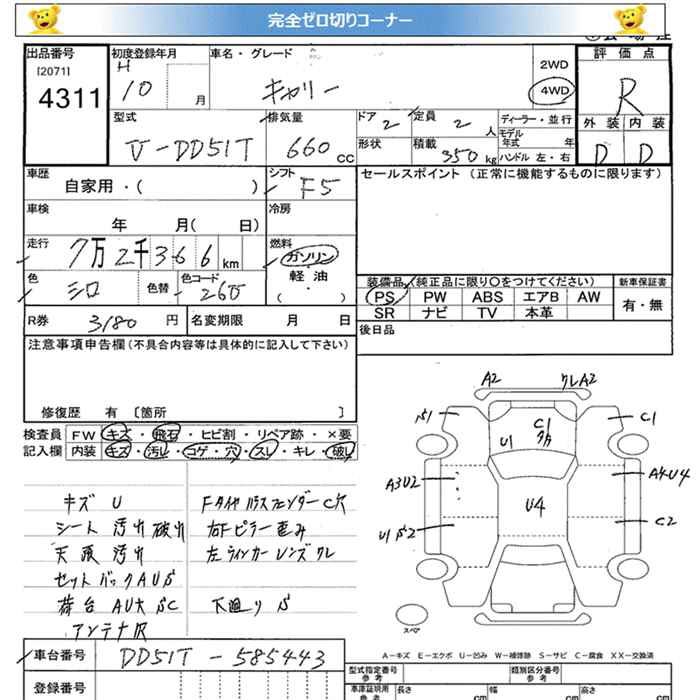 完全ゼロ切りコーナー
出品番号
[2071]
4311
初度登録年月
H
10 月
車名・グレード
キャリー
2WD
4WD
評価点
R
外装 内装
D D
型式
V-DD51T
排気量
660 cc
ドア 2
定員 2 人
形状
積載 350 kg
ディーラー・並行
モデル年式 年
ハンドル 左・右
車歴
自家用・( )
シフト
F5
セールスポイント (正常に機能するものに限ります)
車検
年 月( 日)
冷房
走行
7万2千366 km
燃料
ガソリン
軽油
( ・ )
色
シロ
色替
色コード
26U
装備品 (純正品に限り○をつけてください)
新車保証書
PS PW ABS エアB AW
有・無
SR ナビ TV 本革
R券 3180 円
名変期限 月 日
後日品
注意事項申告欄 (不具合内容等は具体的に記入して下さい)
修復歴 有 〔箇所 〕
検査員 FW キズ・飛石・ヒビ割・リペア跡・×要
記入欄 内装 キズ・汚れ・コゲ・穴・スレ・キレ・破れ
キズ U
シート 汚れ 破れ
天張 汚れ
セットバックAUS
荷台 AU大SC
アンテナ
Fタイヤハウスフェンダー C穴
右Fピラー歪み
左ウインカーレンズワレ
下廻り S
A2
ワレA2
S1
U1
C1
C1
A3U2
U4
A4U4
U1S2
C2
スペア
A-キズ E-エクボ U-凹み W-補修跡 S-サビ C-腐食 XX-交換済
車台番号
DD51T-585443
登録番号
型式指定番号
参考
類別区分番号
参考
車庫証明用
参考
長さ cm
幅 cm
高さ cm